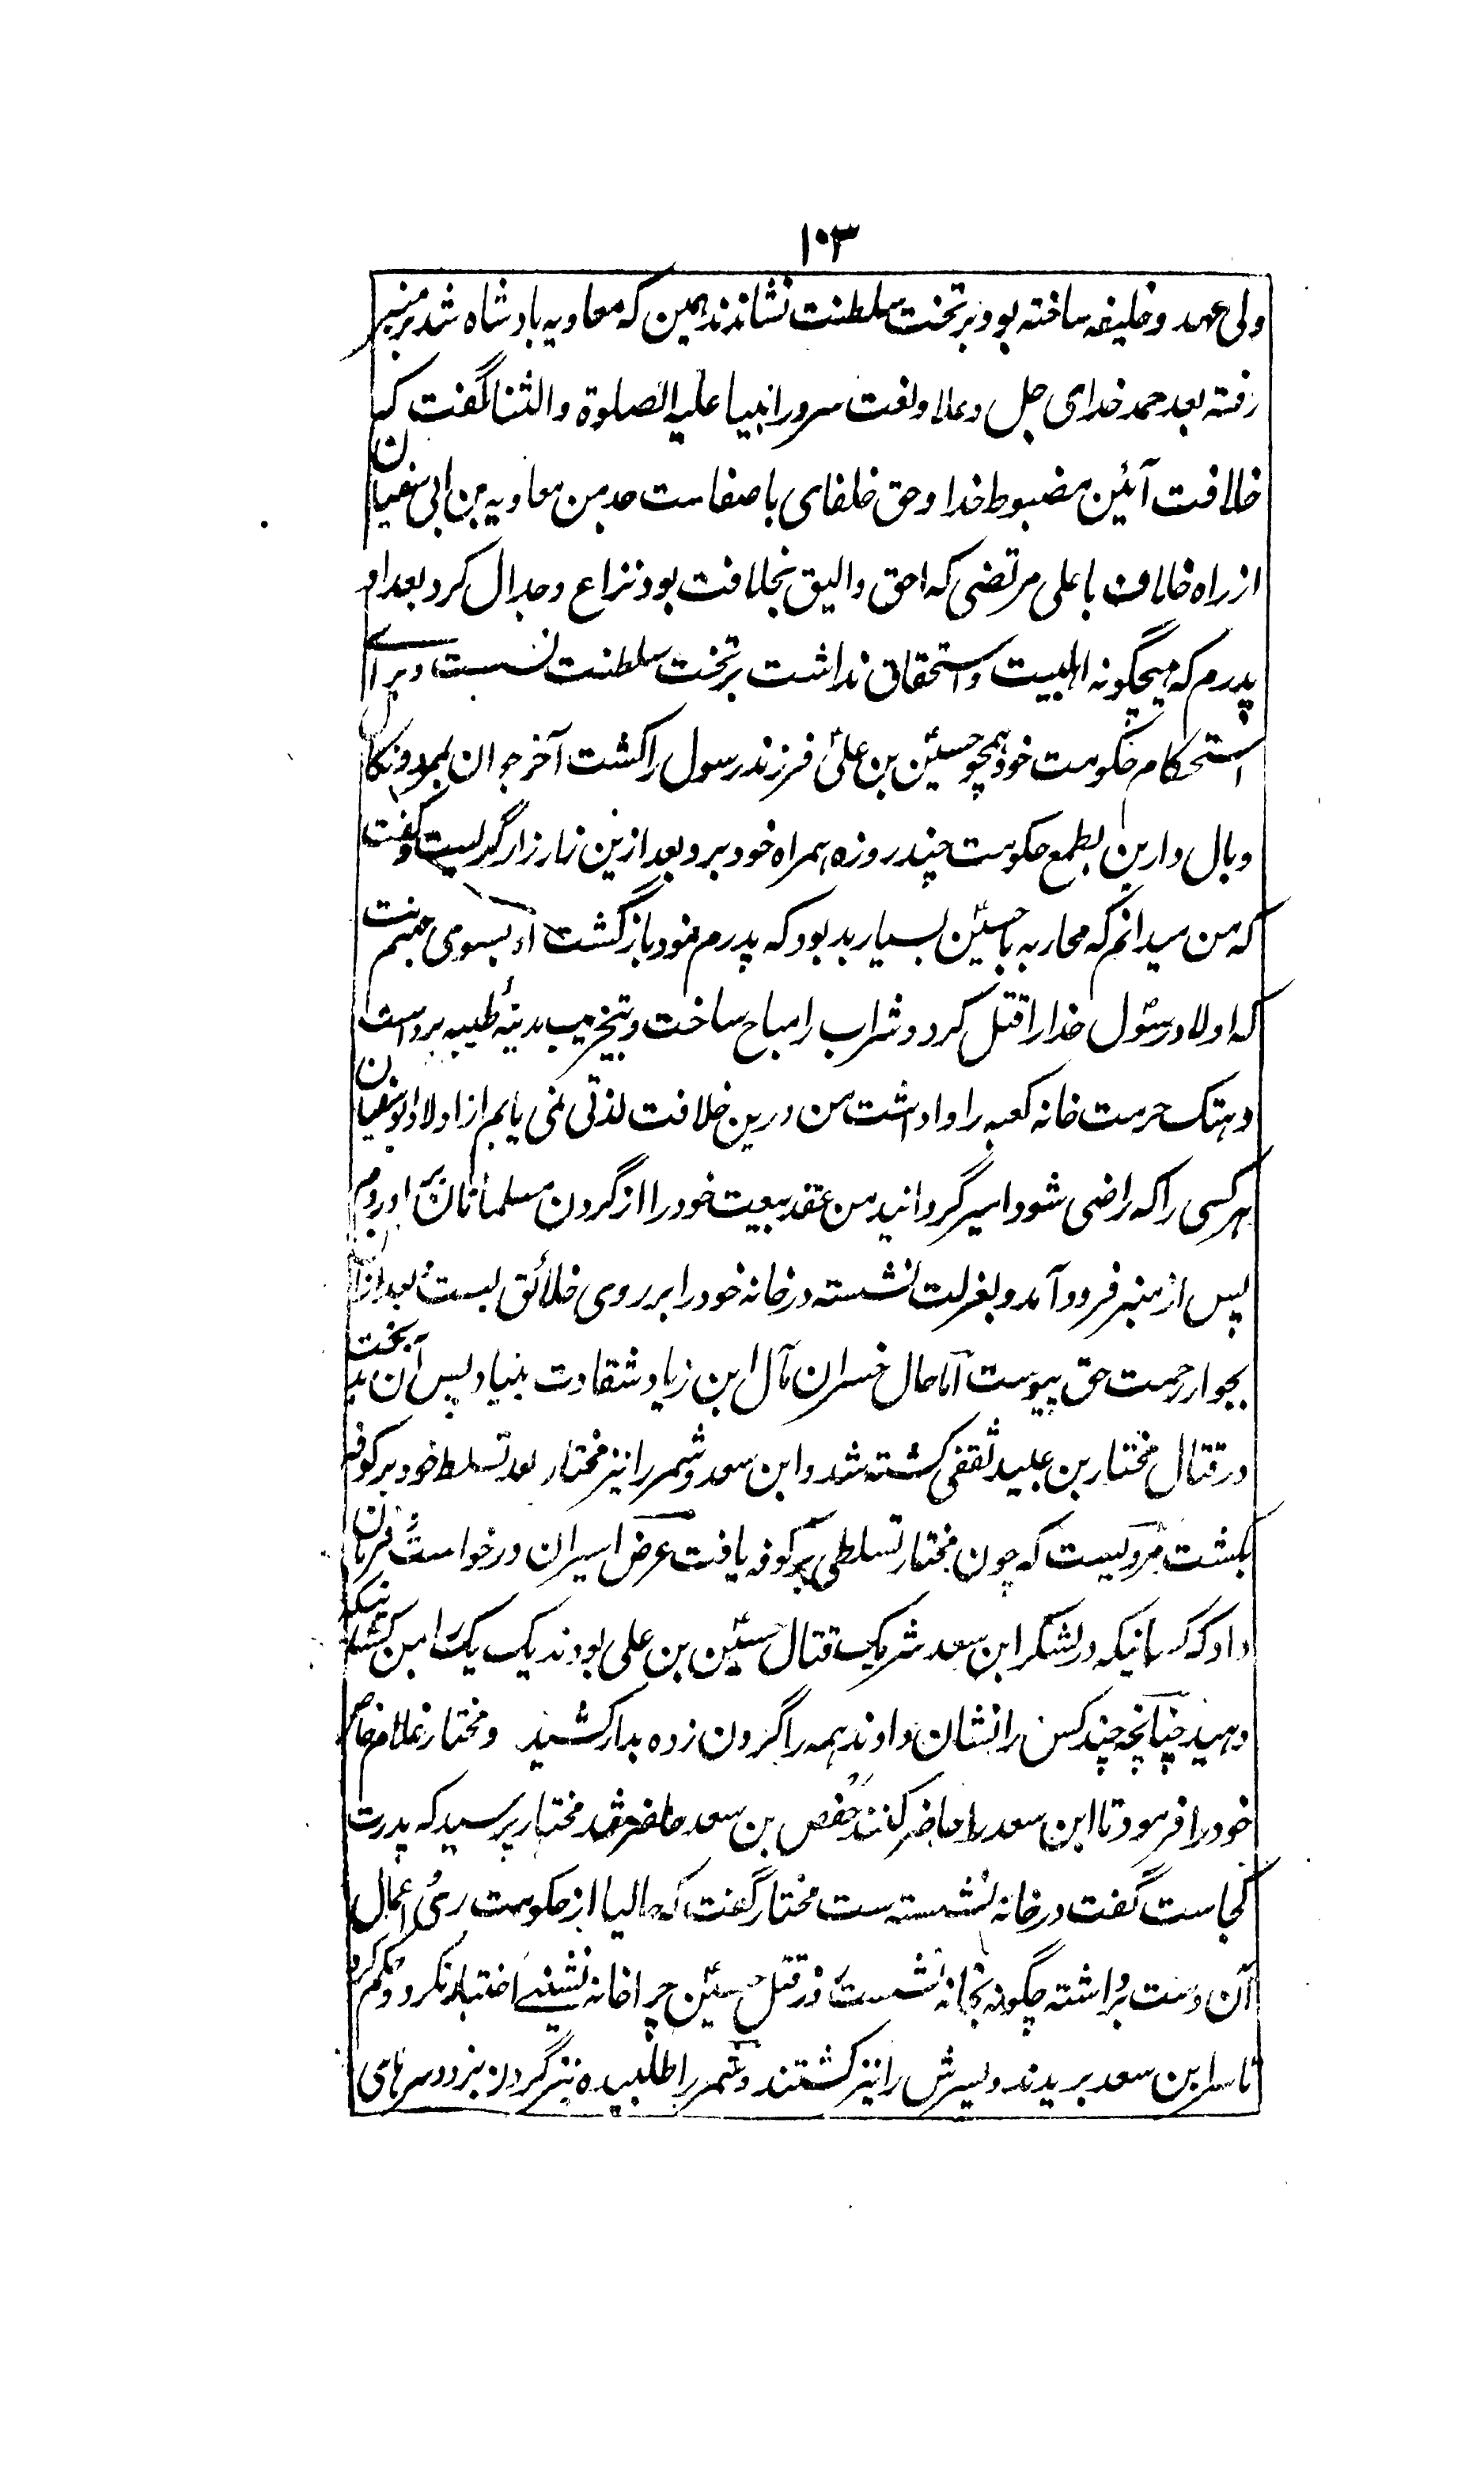 ۱۰۳
ولی عهد و خلیفه ساخته بود بر تخت سلطنت نشاندند همین که معاویه بادشاه شد بر منبر
رفته بعد حمد خدای جل و علا و نعت سرور انبیا علیه الصلوة والثنا گفت که
خلافت آئین مضبوط خدا و حق خلفای باصفاست جد من معاویه بن ابی سفیان
از راه خلاف با علی مرتضی که احق و الیق بخلافت بود نزاع و جدال کرد بعد او
پدرم که هیچگونه اهلبیت و استحقاق نداشت بر تخت سلطنت نشست و برای
استحکام حکومت خود همچو حسینؑ بن علیؑ فرزند رسول را کشت آخر جوان بمرد و نکال
و بال دارین بطمع حکومت چند روزه همراه خود برد بعد ازین زار زار گریست و گفت
که من میدانم که محاربه با حسینؑ بسیار بد بود که پدرم نمود بازگشت او بسوی جهنم ست
که اولاد رسولؐ خدا را قتل کرد و شراب را مباح ساخت و بتخریب مدینهٔ طیبه پرداخت
و هتک حرمت خانه کعبه روا داشت من درین خلافت لذتی نمی یابم از اولاد ابوسفیان
هر کسی را که راضی شود امیر گردانید من عقد بیعت خود را از گردن مسلمانان برآوردم
پس از منبر فرود آمد و بعزلت نشسته در خانه خود را بر روی خلائق بست و بعد ازان
بجوار رحمت حق پیوست اما حال خسران مآل ابن زیاد شقاوت بنیاد پس آن بدبخت
در قتال مختار بن عبید ثقفی کشته شد و ابن سعد و شمر را نیز مختار بعد تسلط خود بر کوفه
بکشت مرویست که چون مختار تسلطی بر کوفه یافت عرض اسیران درخواست و فرمان
داد که کسانیکه در لشکر ابن سعد شریک قتال حسینؑ بن علی بودند یک یک را بمن نشان
دهید چنانچه چند کس را نشان دادند همه را گردن زده بدار کشید و مختار غلام خاص
خود را فرمود تا ابن سعد را حاضر کنند حفص بن سعد حاضر شد مختار پرسید که پدرت
کجاست گفت در خانه نشسته ست مختار گفت که حالیا از حکومت ری و اعمال
آن دست برداشته چگونه بخانه نشست و در قتل حسینؑ چرا خانه نشینی اختیار نکرد و حکم کرد
تا سر ابن سعد بریدند و پسرش را نیز کشتند و شمر را طلبیده نیز گردن بزد و سرهای